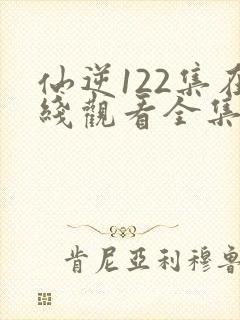 仙逆122集在
綫觀看全集
肯尼亞利穆魯